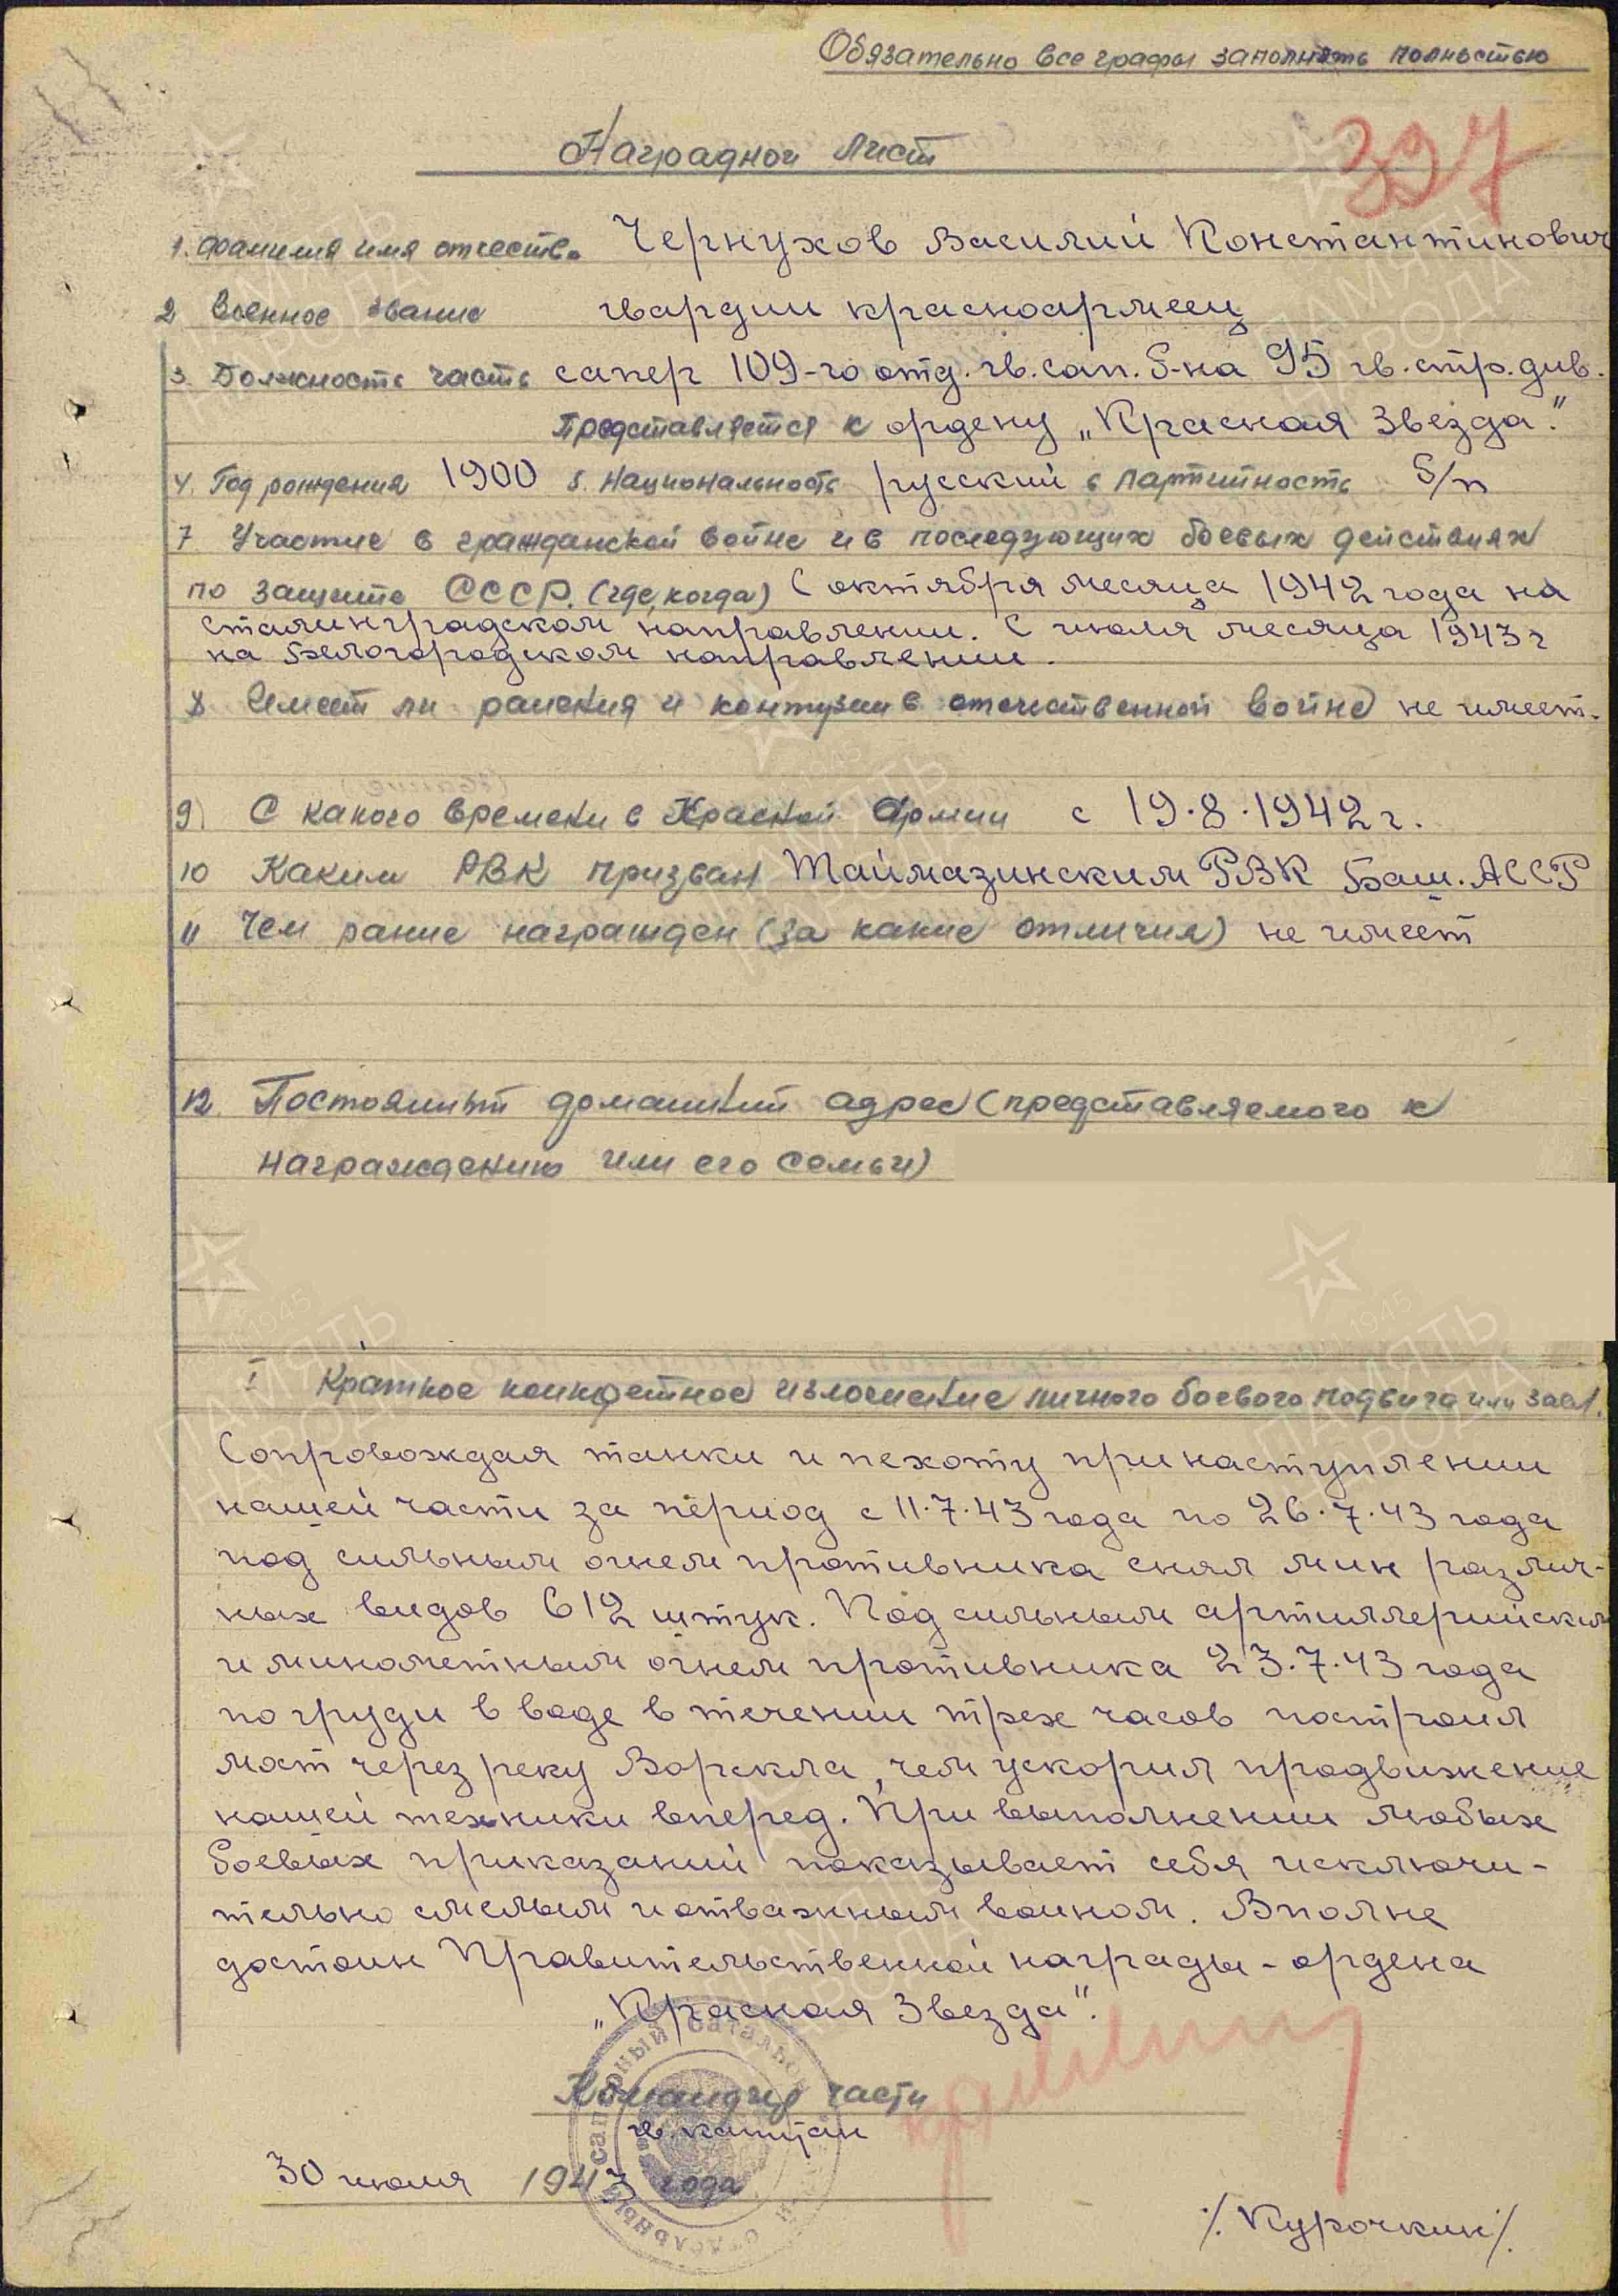 Обязательно все графы заполнять полностью
Наградной лист
397
1. Фамилия имя отчество Чернухов Василий Константинович
2 Военное звание гвардии красноармеец
3. Должность часть сапер 109-го отд. гв. сап. б-на 95 гв. стр. див.
Представляется к ордену „Красная Звезда".
4. Год рождения 1900 5. Национальность русский 6 Партийность б/п
7 Участие в гражданской войне и в последующих боевых действиях
по защите СССР. (где, когда) С октября месяца 1942 года на
сталинградском направлении. С июля месяца 1943 г
на Белогородском направлении.
8 Имеет ли ранения и контузии в отечественной войне не имеет.
9. С какого времени в Красной Армии с 19.8.1942 г.
10 Каким РВК призван Таймазинским РВК Баш. АССР
11 Чем ранее награжден (за какие отличия) не имеет
12. Постоянный домашний адрес (представляемого к
награждению или его семьи)
I Краткое конкретное изложение личного боевого подвига или засл.
Сопровождая танки и пехоту при наступлении
нашей части за период с 11.7.43 года по 26.7.43 года
под сильным огнем противника снял мин различ-
ных видов 612 штук. Под сильным артиллерийским
и минометным огнем противника 23.7.43 года
по груди в воде в течении трех часов построил
мост через реку Ворскла, чем ускорил продвижение
нашей техники вперед. При выполнении любых
боевых приказаний показывает себя исключи-
тельно смелым и отважным воином. Вполне
достоин Правительственной награды - ордена
„Красная Звезда".
Командир части
гв. капитан
30 июля 1943 года
/Курочкин/
ПАМЯТЬ
НАРОДА